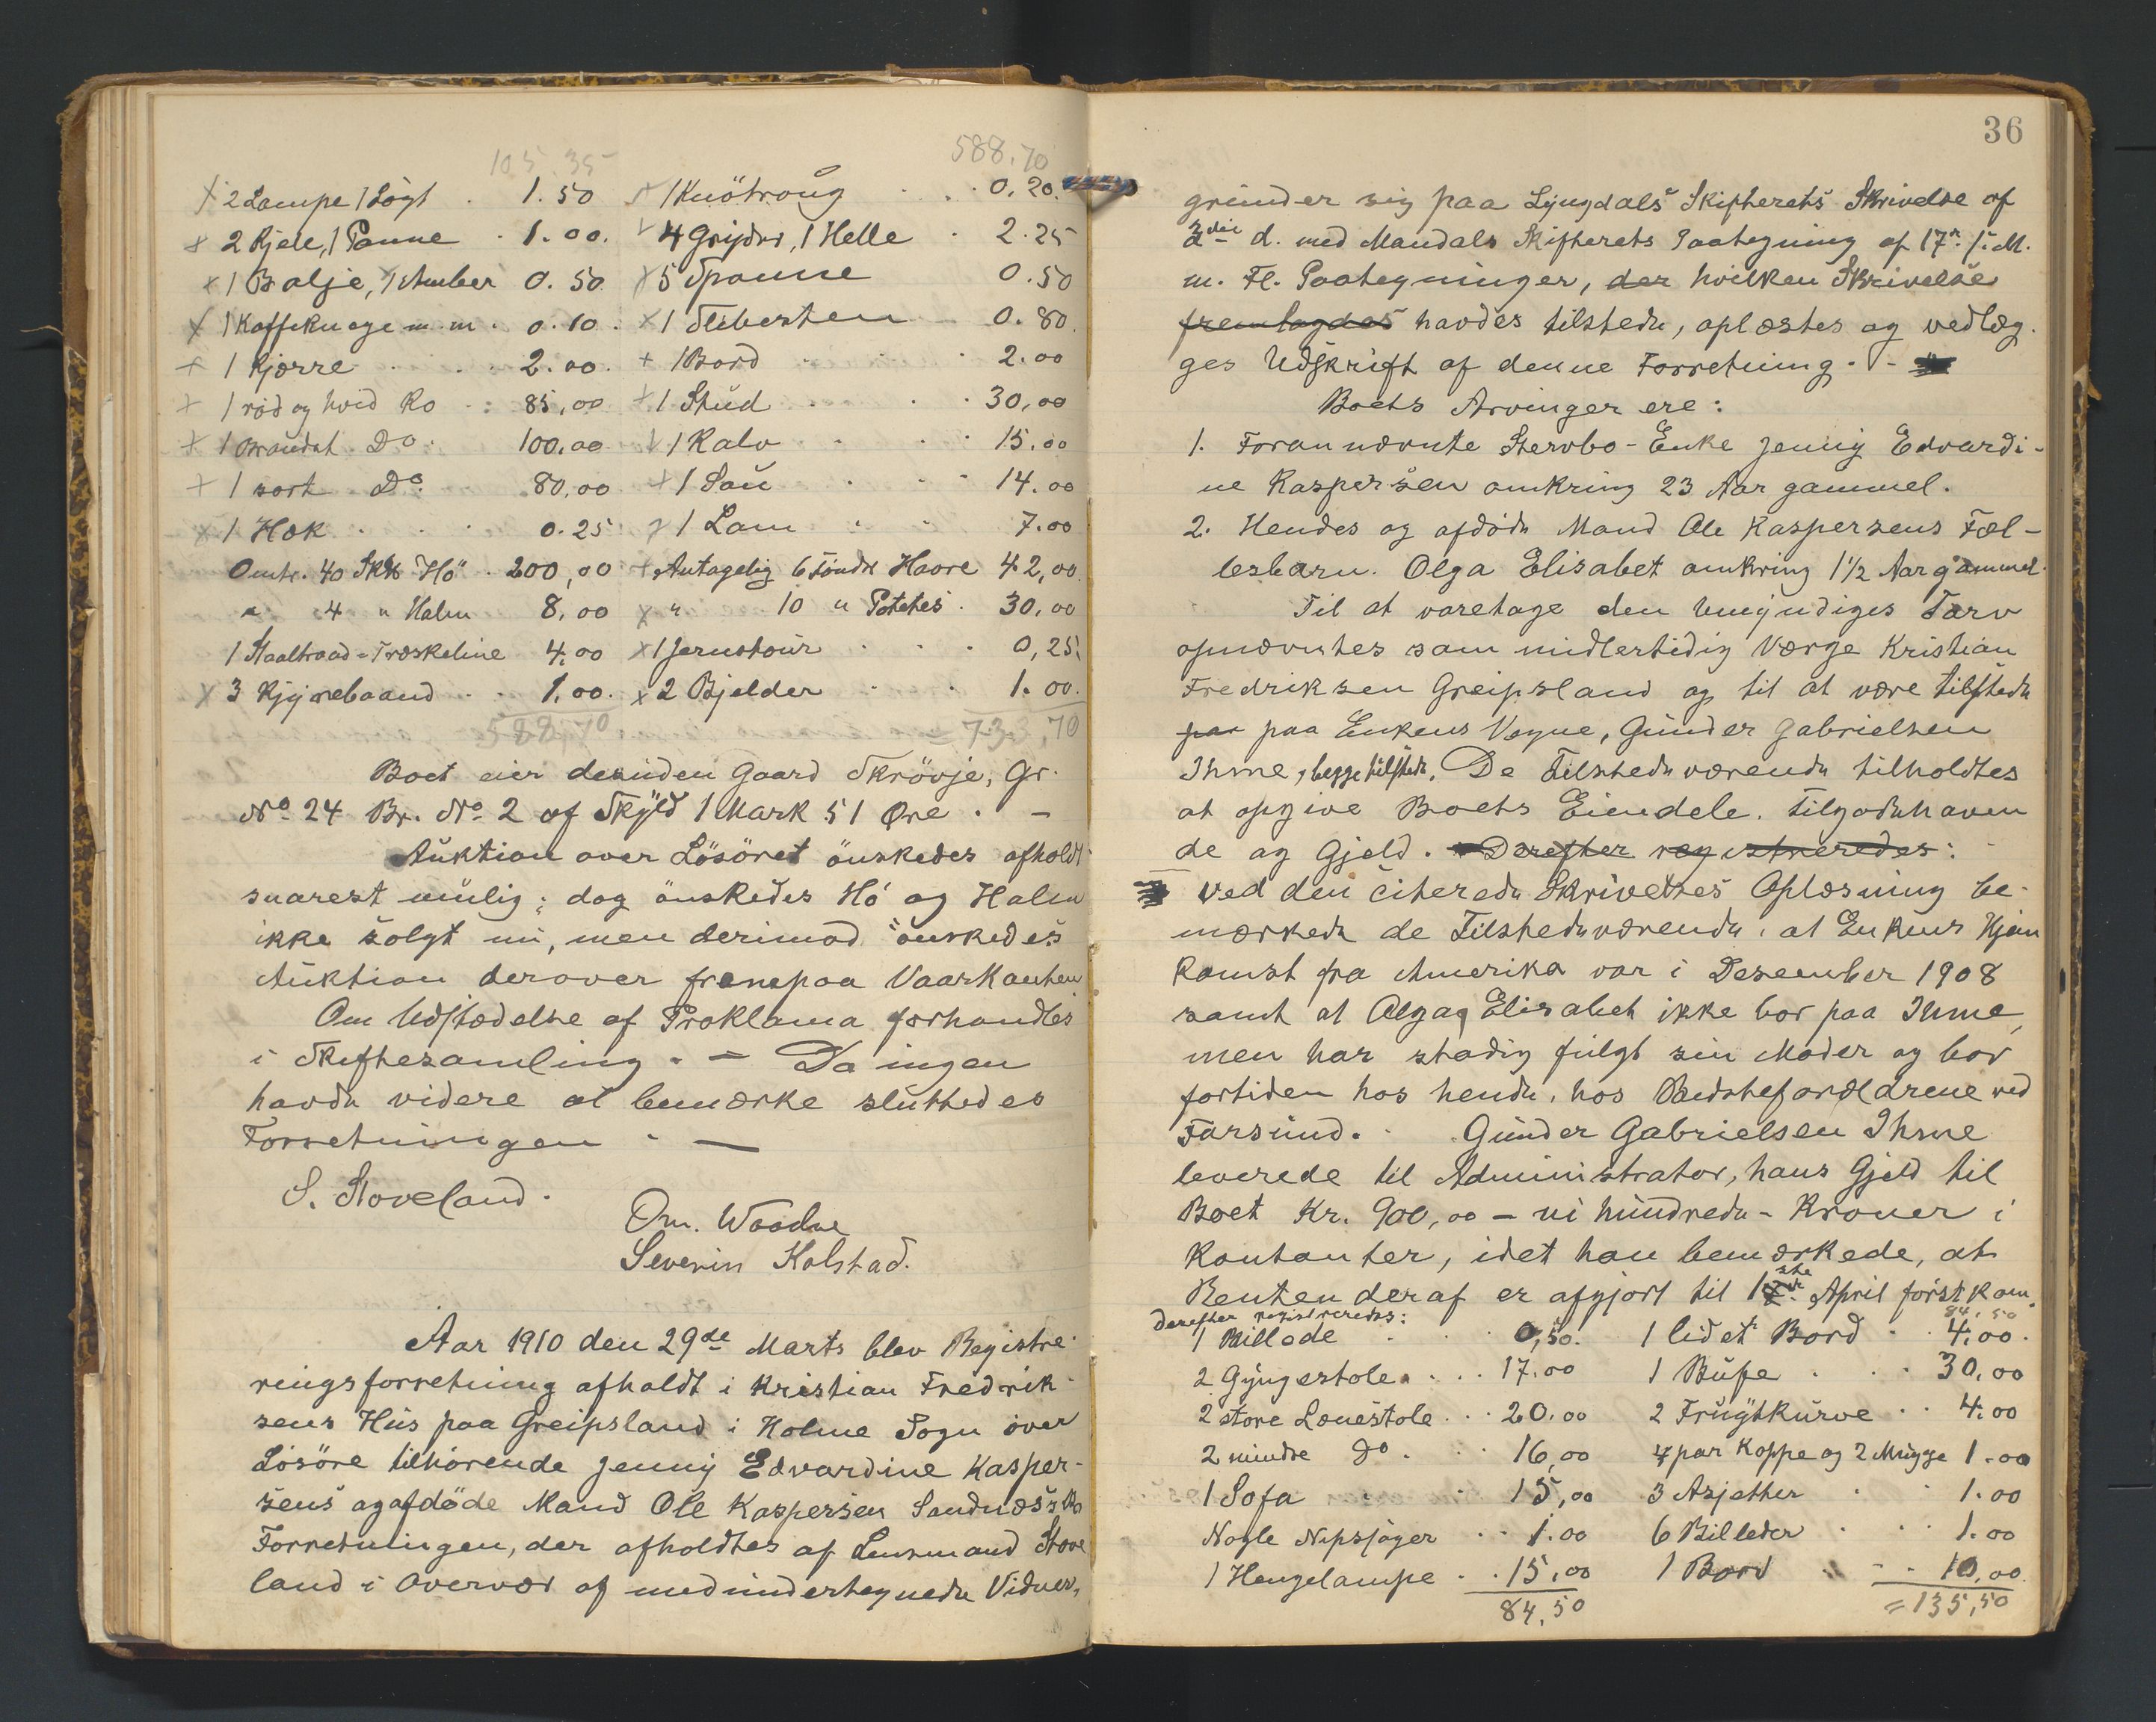 105.35
588.70
2 Lampe 1 Løgt . 1.50
2 Kjele, 1 Panne . 1.00.
1 Balje, 1 Amber 0.50
1 Kaffekuage m. m. 0.10.
1 Kjærre . . . 2.00.
1 rød og hvid Ko . 85,00
1 Brandet Do. 100.00
1 sort Do. 80,00
1 Hæk . . . 0.25
Omtr. 40 Sk℔ Hö . 200,00
" 4 " Halm 8.00
1 Staaltraad-Træskeline 4.00
3 Kjyrebaand . . 1.00.
588,70
1 Knötroug . . 0.20.
4 Gryder, 1 Helle . 2.25
5 Spanne 0.50
1 Slibesten 0.80.
1 Bord . . . 2.00
1 Stud . . . 30,00
1 Kalv . . . 15.00
1 Sau . . . 14.00
1 Lam . . 7.00
Antagelig 6 Tønder Havre 42,00
" 10 " Potetes . 30,00
1 Jernstour . . . 0,25
2 Bjelder . . 1.00.
= 733,70
Boet eier desuden Gaard Skrövje, Gr.
No. 24 Br. No. 2 af Skyld 1 Mark 51 Øre . –
Auktion over Lösöret önskedes afholdt
snarest mulig; dog önskedes Hö og Halm
ikke solgt nu, men derimod önskedes
Auktion derover frempaa Vaarkanten
Om Udstædelse af Proklama forhandles
i Skiftesamling. – Da ingen
havde videre at bemærke sluttedes
Forretningen . —
S. Stoveland.
Om. Waadne
Severin Kolstad.
Aar 1910 den 29de Marts blev Registre-
ringsforretning afholdt i Kristian Fredrik-
sens Hus paa Greipsland i Holme Sogn over
Lösöre tilhörende Jenny Edvardine Kasper-
sens og afdöde Mand Ole Kaspersen Sandnæss Bo
Forretningen, der afholdtes af Lensmand Stove
land i Overvær af medundertegnede Vidner,
36
grunder sig paa Lyngdals Skifterets Skrivelse af
2den d. med Mandals Skifterets Paategning af 17de s. M.
m. Fl. Paategninger, der hvilken Skrivelse
fremlagdes havdes tilstede, oplæstes og vedlæg-
ges Udskrift af denne Forretning . -
Boets Arvinger ere:
1. Forannævnte Stervbo-Enke Jenny Edvardi-
ne Kaspersen omkring 23 Aar gammel.
2. Hendes og afdöde Mand Ole Kaspersens Fæl-
lesbarn. Olga Elisabet omkring 1 1/2 Aar gammel.
Til at varetage den Umyndiges Tarv
opnævntes som midlertidig Værge Kristian
Fredriksen Greipsland og til at være tilstede
paa paa Enkens Vegne, Gunder Gabrielsen
Ihme, begge tilstede. De Tilstedeværende tilholdtes
at opgive Boets Eiendele, tilgodehaven
de og Gjeld. Derefter registreredes:
ved den citerede Skrivelses Oplæsning be-
mærkede de Tilstedeværende, at Enkens Hjem
komst fra Amerika var i Desember 1908
samt at Olga Elisabet ikke bor paa Ihme,
men har stadig fulgt sin Moder og bor
fortiden hos hende, hos Bedsteforældrene ved
Farsund. . Gunder Gabrielsen Ihme
leverede til Administrator, hans Gjeld til
Boet Kr. 900,00 – ni hundrede – Kroner i
Kontanter, idet han bemærkede, at
Renten deraf er afgjort til 1ste April förstkom.
Derefter registreredes:
84,50
1 Billede . . 0,50.
2 Gyngestole . . . 17.00
2 store Lænestole . . 20.00
2 mindre Do. . . 16,00
1 Sofa . . . 15,00
Nogle Nipsjager . . 1.00
1 Hengelampe . . 15,00
84,50
1 lidet Bord . . 4.00.
1 Bufe . . . 30,00
2 Frugtkurve . . 4.00
4 par Koppe og 2 Mugge 1.00
3 Asjetter . . 1.00
6 Billeder . . . 1.00
1 Bord . . . 10,00
= 135,50